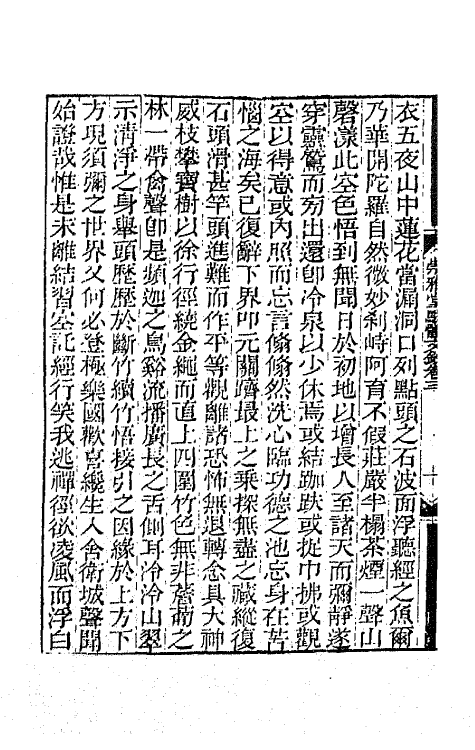 衣五夜山中蓮花當漏洞口列點頭之石波面浮聽經之魚爾
乃華開陀羅自然微妙刹峙阿育不假莊嚴半榻茶煙一聲山
磬漾此空色悟到無聞日於初地以增長人至諸天而彌靜遂
穿靈鷲而旁出還卽冷泉以少休焉或結跏趺或從中拂或觀
空以得意或內照而忘言翛翛然洗心臨功德之池忘身在苦
惱之海矣已復辭下界叩元關躋最上之乗探無盡之藏縱復
石頭滑甚竿頭進難而作平等觀離諸恐怖無退轉念具大神
威枝攀寶樹以徐行徑繞金繩而直上四圍竹色無非薝蔔之
林一帶禽聲卽是頻迦之鳥谿流播廣長之舌側耳泠泠山翠
示清淨之身舉頭歷歷於斷竹續竹悟接引之因緣於上方下
方現須彌之世界又何必登極樂國歡喜纔生入舍衛城聲聞
始證哉惟是未離結習妄託經行笑我逃禪徑欲凌風而浮白
雅堂駢體文鈔卷三
十